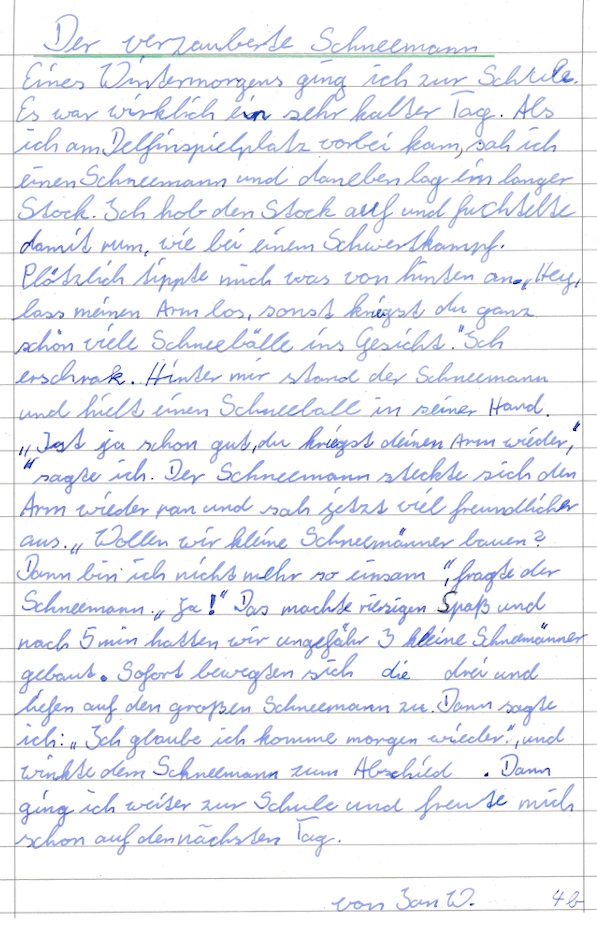 Der verzauberte Schneemann
Eines Wintermorgens ging ich zur Schule.
Es war wirklich ein sehr kalter Tag. Als
ich am Delfinspielplatz vorbei kam, sah ich
einen Schneemann und daneben lag ein langer
Stock. Ich hob den Stock auf und fuchtelte
damit rum, wie bei einem Schwertkampf.
Plötzlich tippte mich was von hinten an. „Hey,
lass meinen Arm los, sonst kriegst du ganz
schön viele Schneebälle ins Gesicht." Ich
erschrak. Hinter mir stand der Schneemann
und hielt einen Schneeball in seiner Hand.
„Ist ja schon gut, du kriegst deinen Arm wieder,"
" sagte ich. Der Schneemann steckte sich den
Arm wieder ran und sah jetzt viel freundlicher
aus. „Wollen wir kleine Schneemänner bauen?
Dann bin ich nicht mehr so einsam", fragte der
Schneemann. „Ja!" Das machte riesigen Spaß und
nach 5 min hatten wir ungefähr 3 kleine Schneemänner
gebaut. Sofort bewegten sich die drei und
liefen auf den großen Schneemann zu. Dann sagte
ich: „Ich glaube ich komme morgen wieder.", und
winkte dem Schneemann zum Abschied. Dann
ging ich weiter zur Schule und freute mich
schon auf den nächsten Tag.
von Jan W. 4b